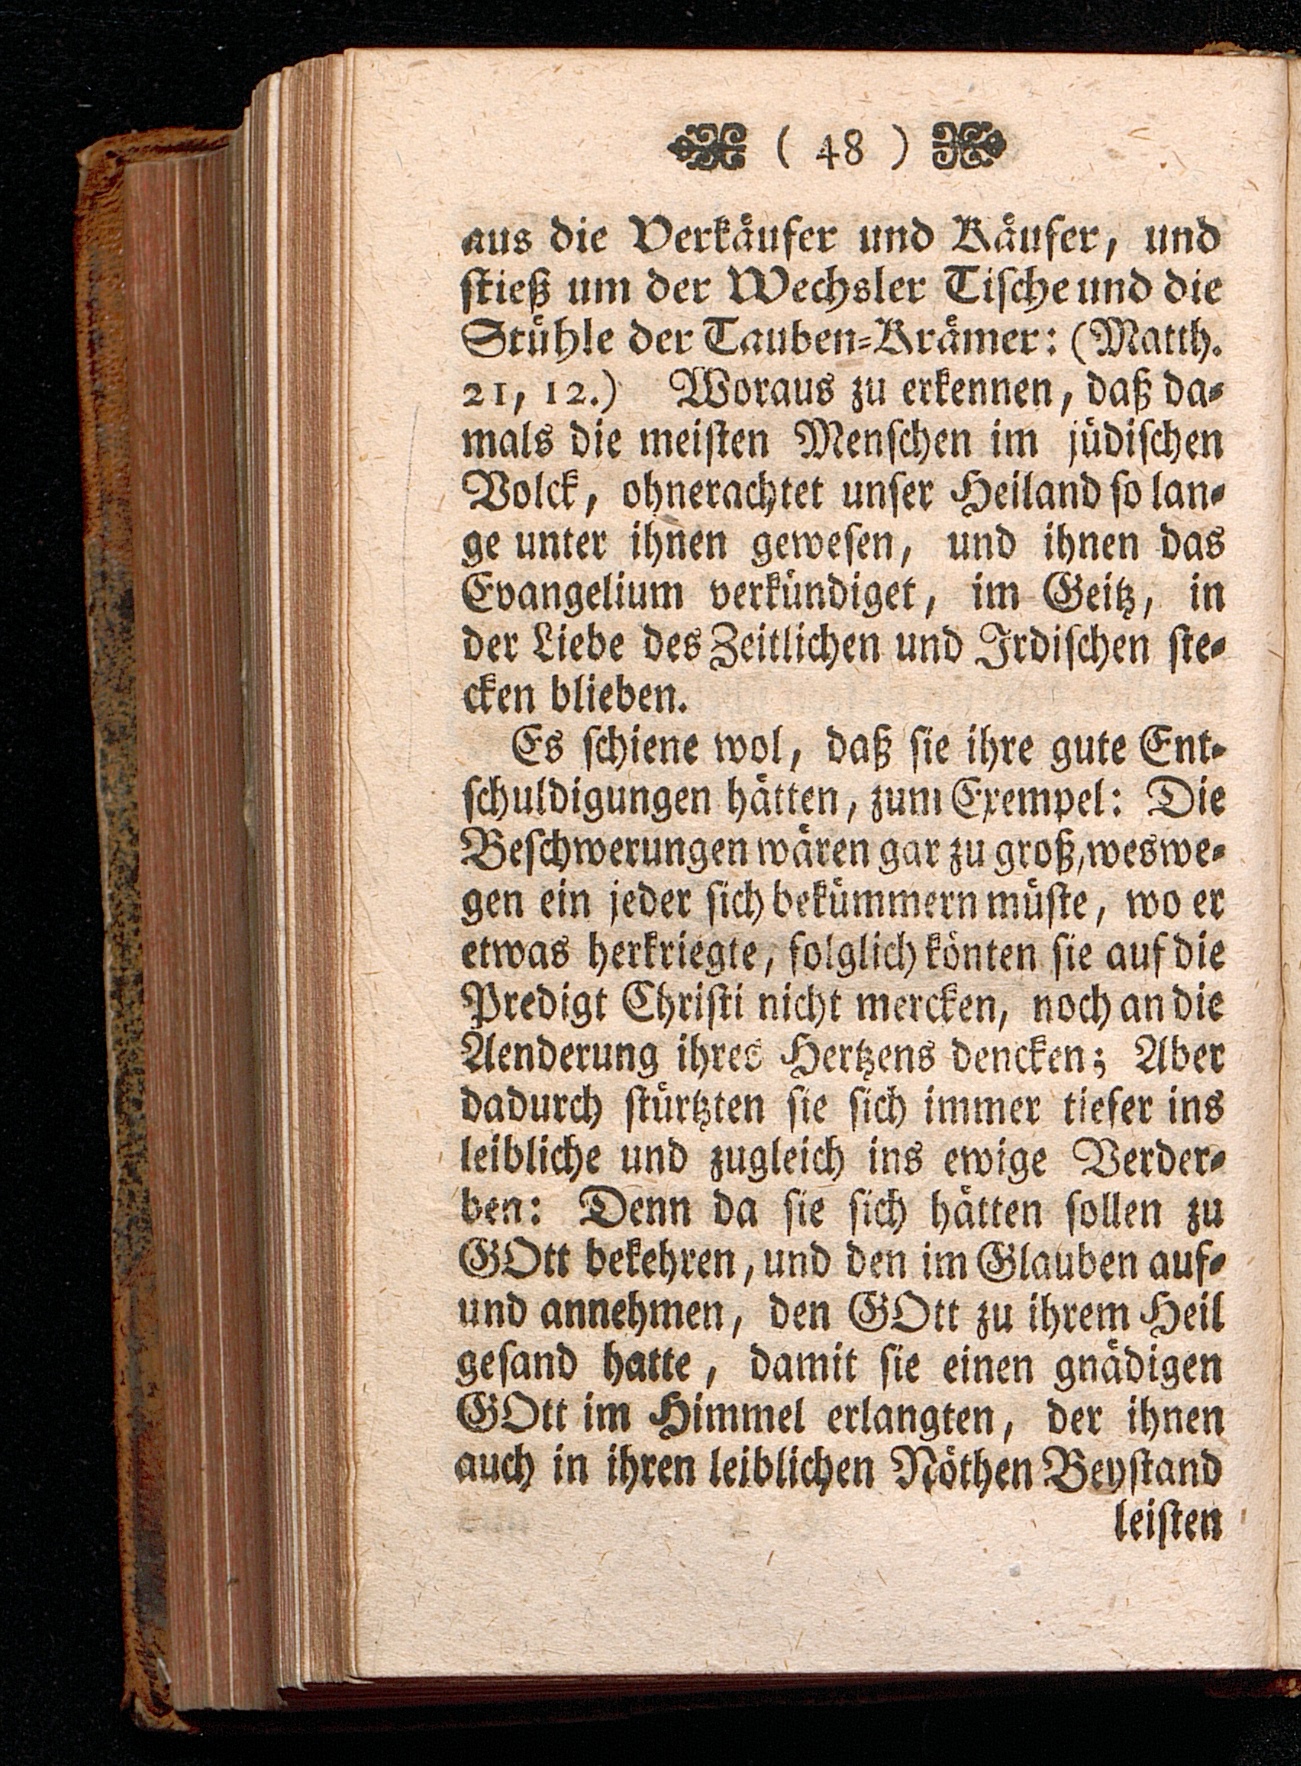 ( 48 )
aus die Verkäufer und Käufer, und
stieß um der Wechsler Tische und die
Stühle der Tauben-Krämer: (Matth.
21, 12.) Woraus zu erkennen, daß da-
mals die meisten Menschen im jüdischen
Volck, ohnerachtet unser Heiland so lan-
ge unter ihnen gewesen, und ihnen das
Evangelium verkündiget, im Geitz, in
der Liebe des Zeitlichen und Irdischen ste-
cken blieben.
Es schiene wol, daß sie ihre gute Ent-
schuldigungen hätten, zum Exempel: Die
Beschwerungen wären gar zu groß, weswe-
gen ein jeder sich bekümmern müste, wo er
etwas herkriegte, folglich könten sie auf die
Predigt Christi nicht mercken, noch an die
Aenderung ihres Hertzens dencken; Aber
dadurch stürtzten sie sich immer tiefer ins
leibliche und zugleich ins ewige Verder-
ben: Denn da sie sich hätten sollen zu
GOtt bekehren, und den im Glauben auf-
und annehmen, den GOtt zu ihrem Heil
gesand hatte, damit sie einen gnädigen
GOtt im Himmel erlangten, der ihnen
auch in ihren leiblichen Nöthen Beystand
leisten